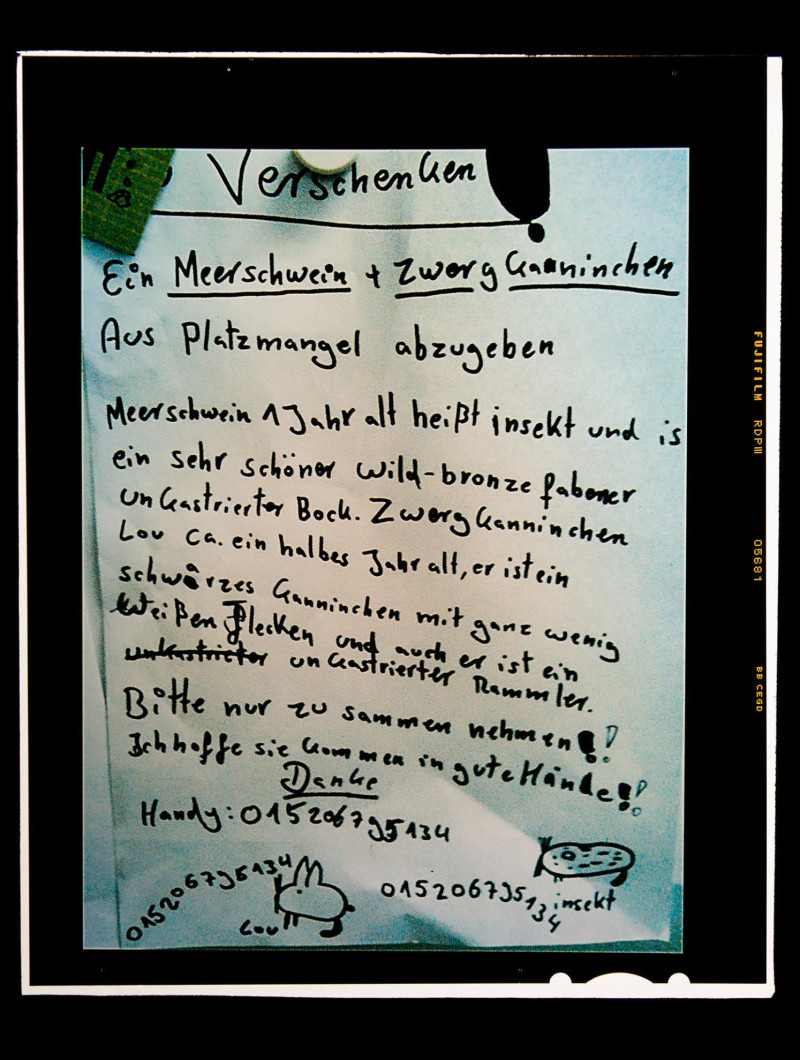 Verschenken
Ein Meerschwein + Zwerg Kaaninchen
Aus Platzmangel abzugeben
Meerschwein 1 Jahr alt heißt insekt und is
ein sehr schöner wild-bronze fabener
unkastrierter Bock. Zwergkanninchen
Lou ca. ein halbes Jahr alt, er ist ein
schwarzes Kanninchen mit ganz wenig
weißen Flecken und auch er ist ein
unkastrieter unkastrierter Rammler.
Bitte nur zu sammen nehmen!!
Ich hoffe sie kommen in gute Hände!!
Danke
Handy: 015206795134
015206795134
Lou
015206795134
insekt
FUJIFILM RDPIII
05681
BB CEGD